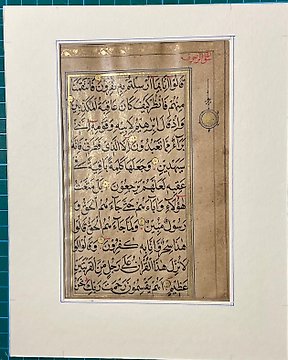 الزخرف
قَالُوا إِنَّا بِمَا أُرْسِلْتُمْ بِهِ كَفِرُونَ فَانْتَقَمْنَا
مِنْهُمْ فَانْظُرْ كَيْفَ كَانَ عَاقِبَةُ الْمُكَذِّبِينَ
وَإِذْ قَالَ إِبْرَهِيمُ لِأَبِيهِ وَقَوْمِهِ إِنَّنِي
بَرَاءٌ مِمَّا تَعْبُدُونَ إِلَّا الَّذِي فَطَرَنِي فَإِنَّهُ
سَيَهْدِينِ وَجَعَلَهَا كَلِمَةً بَاقِيَةً فِي
عَقِبِهِ لَعَلَّهُمْ يَرْجِعُونَ بَلْ مَتَّعْتُ
هَؤُلَاءِ وَآبَاءَهُمْ حَتَّى جَاءَهُمُ الْحَقُّ وَ
رَسُولٌ مُبِينٌ وَلَمَّا جَاءَهُمُ الْحَقُّ قَالُوا
هَذَا سِحْرٌ وَإِنَّا بِهِ كَفِرُونَ وَقَالُوا لَوْ
لَا نُزِّلَ هَذَا الْقُرْآنُ عَلَى رَجُلٍ مِنَ الْقَرْيَتَيْنِ
عَظِيمٍ أَهُمْ يَقْسِمُونَ رَحْمَتَ رَبِّكَ نَحْنُ